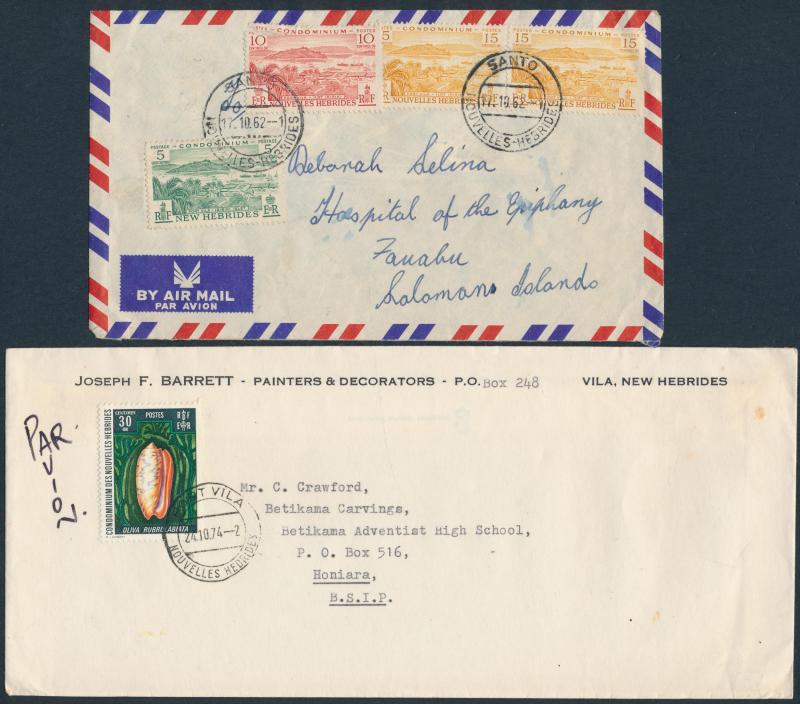 POSTES CONDOMINIUM POSTES
10 10
E·R NOUVELLES HEBRIDES R·F
CONDOMINIUM
5 15
NOUVELLES HEBRIDES
POSTES CONDOMINIUM POSTES
15 15
E·R NOUVELLES HEBRIDES R·F
SANTO
17.10.62--1
NOUVELLES-HEBRIDES
SANTO
17.10.62--1
NOUVELLES-HEBRIDES
POSTAGE CONDOMINIUM POSTAGE
5 5
R·F NEW HEBRIDES E·R
Deborah Selina
Hospital of the Epiphany
Fauabu
Solomon Islands
BY AIR MAIL
PAR AVION
JOSEPH F. BARRETT - PAINTERS & DECORATORS - P.O. Box 248 VILA, NEW HEBRIDES
PAR
AVION
CENTIMES
30
OR
POSTES
R F
E R
CONDOMINIUM DES NOUVELLES-HEBRIDES
OLIVA RUBROLABIATA
PORT VILA
24.10.74--2
NOUVELLES HEBRIDES
Mr. C. Crawford,
Betikama Carvings,
Betikama Adventist High School,
P. O. Box 516,
Honiara,
B.S.I.P.